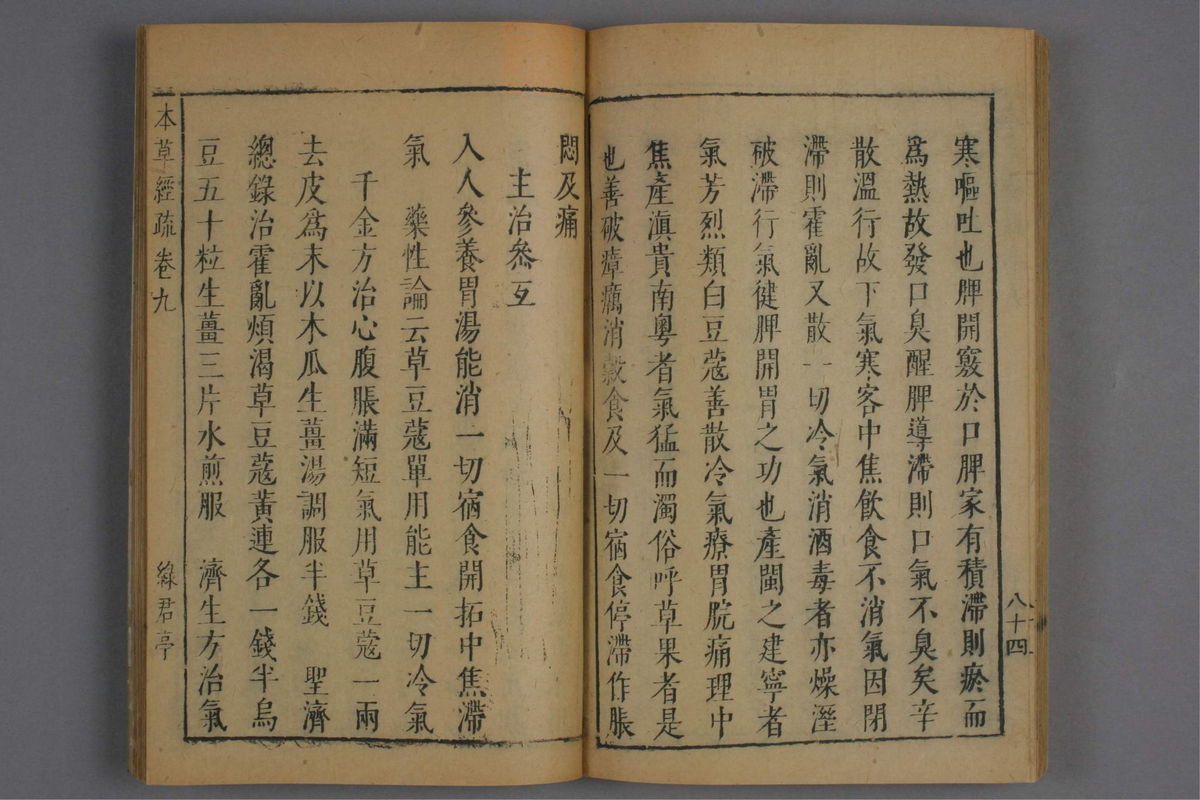 寒嘔吐也脾開竅於口脾家有積滯則瘀而
爲熱故發口臭醒脾導滯則口氣不臭矣辛
散溫行故下氣寒客中焦飲食不消氣因閉
滯則霍亂又散一切冷氣消酒毒者亦燥溼
破滯行氣健脾開胃之功也產閩之建寧者
氣芳烈類白豆蔻善散冷氣療胃脘痛理中
焦產滇貴南粵者氣猛而濁俗呼草果者是
也善破瘴癘消穀食及一切宿食停滯作脹
八十四
悶及痛
主治叅互
入人參養胃湯能消一切宿食開拓中焦滯
氣 藥性論云草豆蔻單用能主一切冷氣
千金方治心腹脹滿短氣用草豆蔻一兩
去皮爲末以木瓜生薑湯調服半錢 聖濟
總錄治霍亂煩渴草豆蔻黃連各一錢半烏
豆五十粒生薑三片水煎服 濟生方治氣
本草經疏 卷九 綠君亭